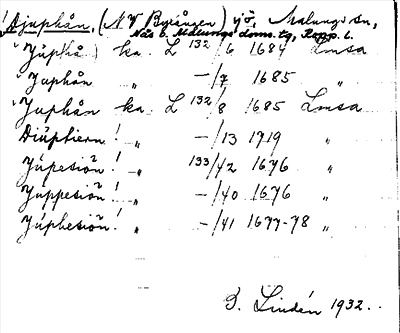 Djuphån. (NV Byrången) sjö, Malungs sn,
Nås o. Malungs doms. tg, Kopp. l.
Jŭphå ka. L 132/6 1684 Lmsa
Juphån „ —/7 1685 „
Juphån ka. L 132/8 1685 Lmsa
Diŭphiern! „ —/13 1719 „
Jŭpesiön! „ 133/42 1676 „
Juppesiön! „ —/40 1676 „
Jŭphesiön! „ —/41 1677-78 „
G. Lindén 1932.